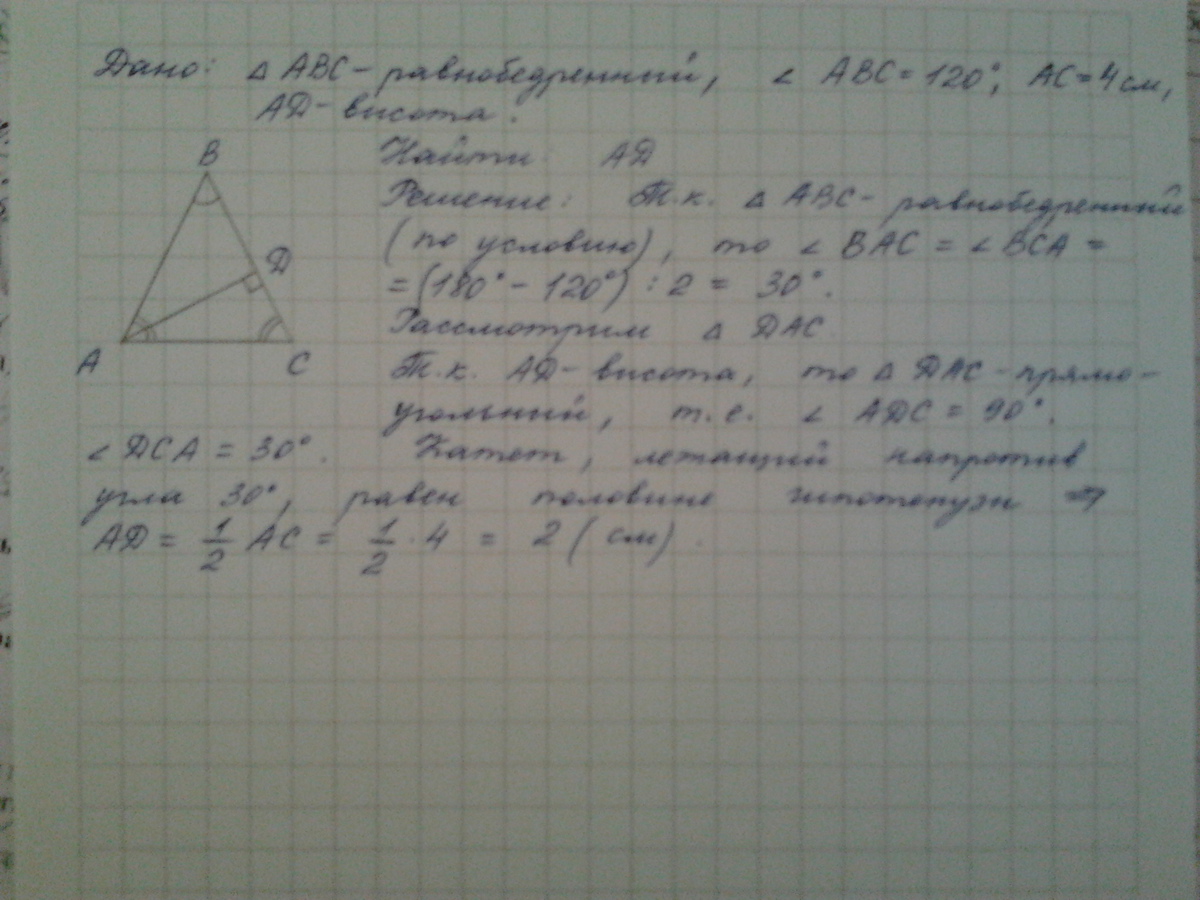 Дано: △ ABC - равнобедренный, ∠ ABC = 120°, AC = 4 см,
AD - высота.
B
Найти: AD
Решение: Т.к. △ ABC - равнобедренный
(по условию), то ∠ BAC = ∠ BCA =
D
= (180° - 120°) : 2 = 30°.
Рассмотрим △ DAC.
A
C
Т.к. AD - высота, то △ DAC - прямо-
угольный, т.е. ∠ ADC = 90°.
∠ DCA = 30°. Катет, лежащий напротив
угла 30°, равен половине гипотенузы ⇒
AD = 1/2 AC = 1/2 · 4 = 2 (см).